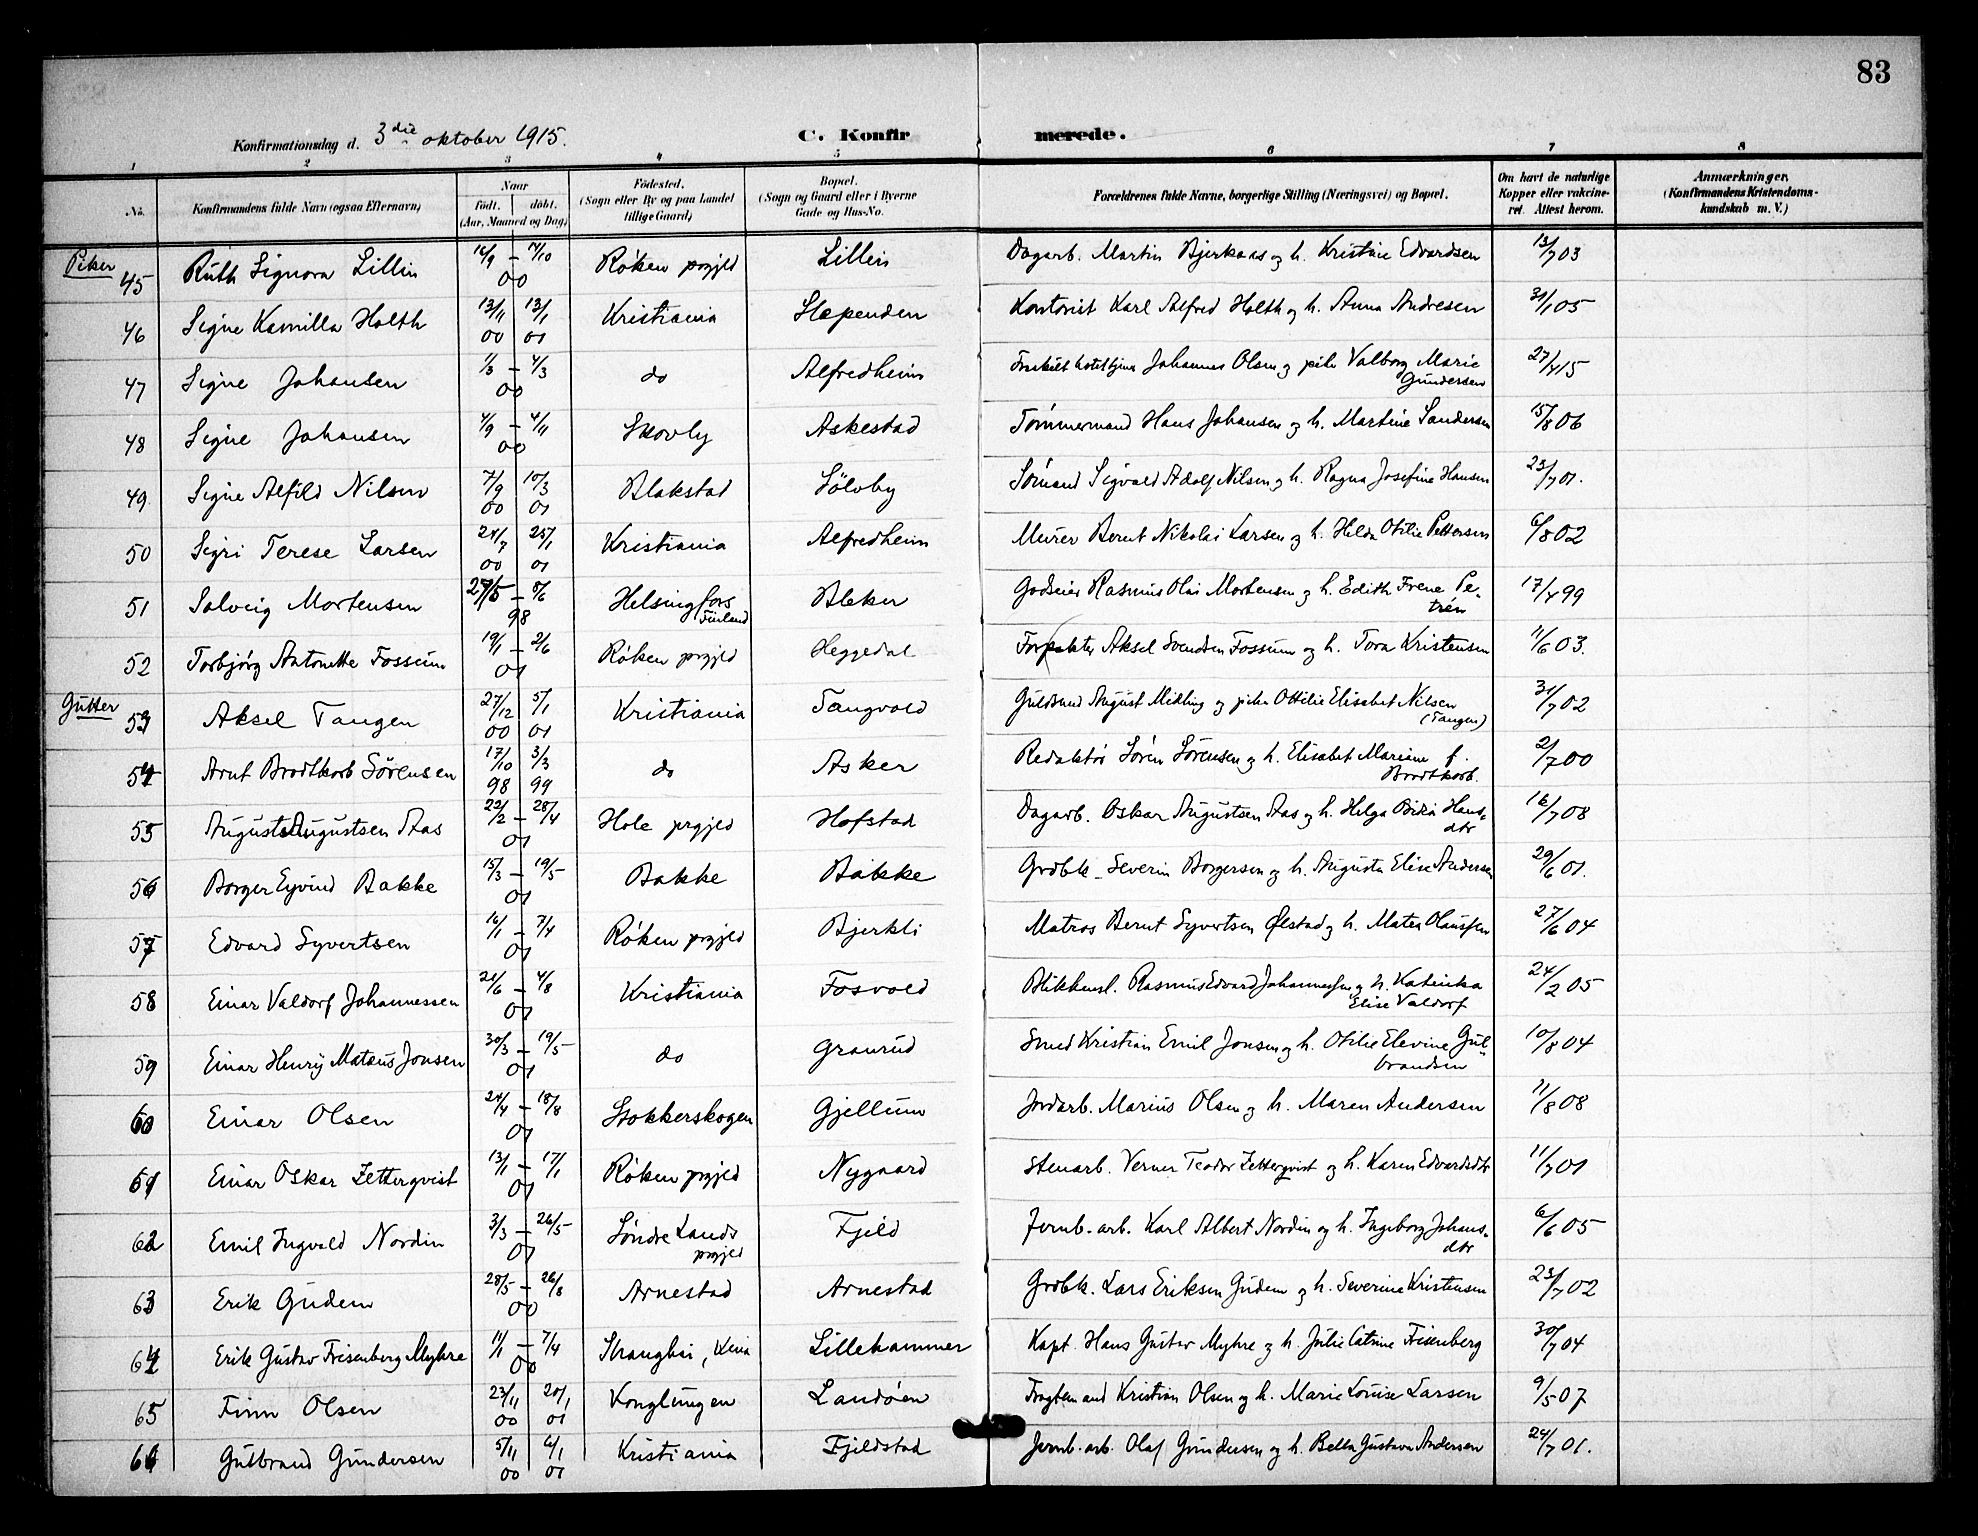 83
Konfirmationsdag d. 3die oktober 1915.
C. Konfirmerede.
1 2 3 4 5 6 7 8
No.
Konfirmandens fulde Navn (ogsaa Efternavn)
Naar
født. døbt.
(Aar, Maaned og Dag)
Fødested.
(Sogn eller By og paa Landet
tillige Gaard)
Bopæl.
(Sogn og Gaard eller i Byerne
Gade og Hus-No.
Forældrenes fulde Navne, borgerlige Stilling (Næringsvei) og Bopæl.
Om havt de naturlige
Kopper eller vakcine-
ret. Attest herom.
Anmærkninger.
(Konfirmandens Kristendoms-
kundskab m. V.)
Piker
45 Ruth Signora Lillin 16/9 – 7/10 00 Røken prgjld Lillein Dagarb. Martin Bjerkaas og h. Kristine Edvardsen 13/7 03
46 Signe Kamilla Holth 13/11 00 13/1 01 Kristiania Slependen Kontorist Karl Alfred Holth og h. Anna Andresen 31/1 05
47 Signe Johansen 1/3 – 4/3 00 do Alfredheim Johannes Olsen og pike Valborg Marie
Gundersen 27/4 15
48 Signe Johansen 4/9 – 4/11 00 Skovly Askestad Tømmermand Hans Johansen og h. Martine Sandersen 15/8 06
49. Signe Alfild Nilsen 7/9 00 10/3 01 Blakstad Sölvby Sømand Sigvald Adolf Nilsen og h. Ragna Josefine Hansen 23/7 01.
50 Sigri Terese Larsen 24/7 00 25/1 01 Kristiania Alfredheim Murer Bernt Nikolai Larsen og h. Hilda Otilie Pettersen 6/8 02
51 Solveig Mortensen 27/5 – 5/6 98 Helsingfors
Finland Bleker Godseier Rasmus Olai Mortensen og h. Edith Irene Pe-
trén 17/4 99
52 Torbjörg Antonette Fossum 19/1 – 2/6 01 Røken prgjld Heggedal Forpakter Aksel Svendsen Fossum og h. Tora Kristensen 11/6 03.
Gutter
53 Aksel Tangen 27/12 00 5/1 01 Kristiania Tangvold Guldsmed August Midling og pike Ottilie Elisabet Nilsen
(Tangen) 31/7 02
54 Arnt Brodtkorb Sörensen 17/10 98 3/3 99 do Asker Redaktør Søren Sörensen og h. Elisabet Mariane f.
Brodtkorb. 2/7 00
55 August Augustsen Aas 22/2 – 28/4 01 Hole prgjld Hofstad Dagarb. Oskar Augustsen Aas og h. Helga Hans-
dtr 16/7 08
56 Borger Eyvind Bakke 15/3 – 19/5 01 Bakke Bakke Grdbk. Severin Borgersen og h. Augusta Elise Andersen 29/6 01.
57 Edvard Syvertsen 16/1 – 7/4 01 Røken prgjld Bjerkli Matros Bernt Syvertsen Ølstad og h. Maten Olaussen 27/6 04
58 Einar Valdorf Johannessen 21/6 – 4/8 01 Kristiania Fosvold Blikkensl. Rasmus Edvard Johannessen og h. Katinka
Elise Valdorf 24/2 05
59 Einar Henry Mataus Jonsen 30/3 – 19/5 01 do Granrud Smed Kristian Emil Jonsen og h. Otilie Elevine Gul-
brandsen 10/8 04
60 Einar Olsen 24/4 – 18/8 01 Stokkerskogen Gjellum Jordarb. Marius Olsen og h. Maren Andersen 11/8 08
61 Einar Oskar Zetterqvist 13/1 – 17/1 01 Røken prgjld Nygaard Stenarb. Verner Teodor Zetterqvist og h. Karen Edvardsdtr 11/7 01
62 Emil Ingvald Nordin 3/3 – 26/5 01 Søndre Lands
prgjld Fjeld Jernb.-arb. Karl Albert Nordin og h. Ingeborg Johans-
dtr 6/6 05
63 Erik Gudem 28/5 – 26/8 00 Arnestad Arnestad Grdbk. Lars Eriksen Gudem og h. Severine Kristensen 23/7 02
64 Erik Gustav Frisenberg Myhre 11/1 – 7/4 00 Shanghai, Kina Lillehammer Kapt. Hans Gustav Myhre og h. Julie Catrine Frisenberg 30/7 04
65 Finn Olsen 23/11 00 20/1 01 Konglungen Landøen Fragtemand Kristian Olsen og h. Marie Louise Larsen 9/5 07
66 Gulbrand Gundersen 5/11 00 6/1 01 Kristiania Fjeldstad Jernb.-arb. Olaf Gundersen og h. Bella Gustava Andersen 24/7 01.